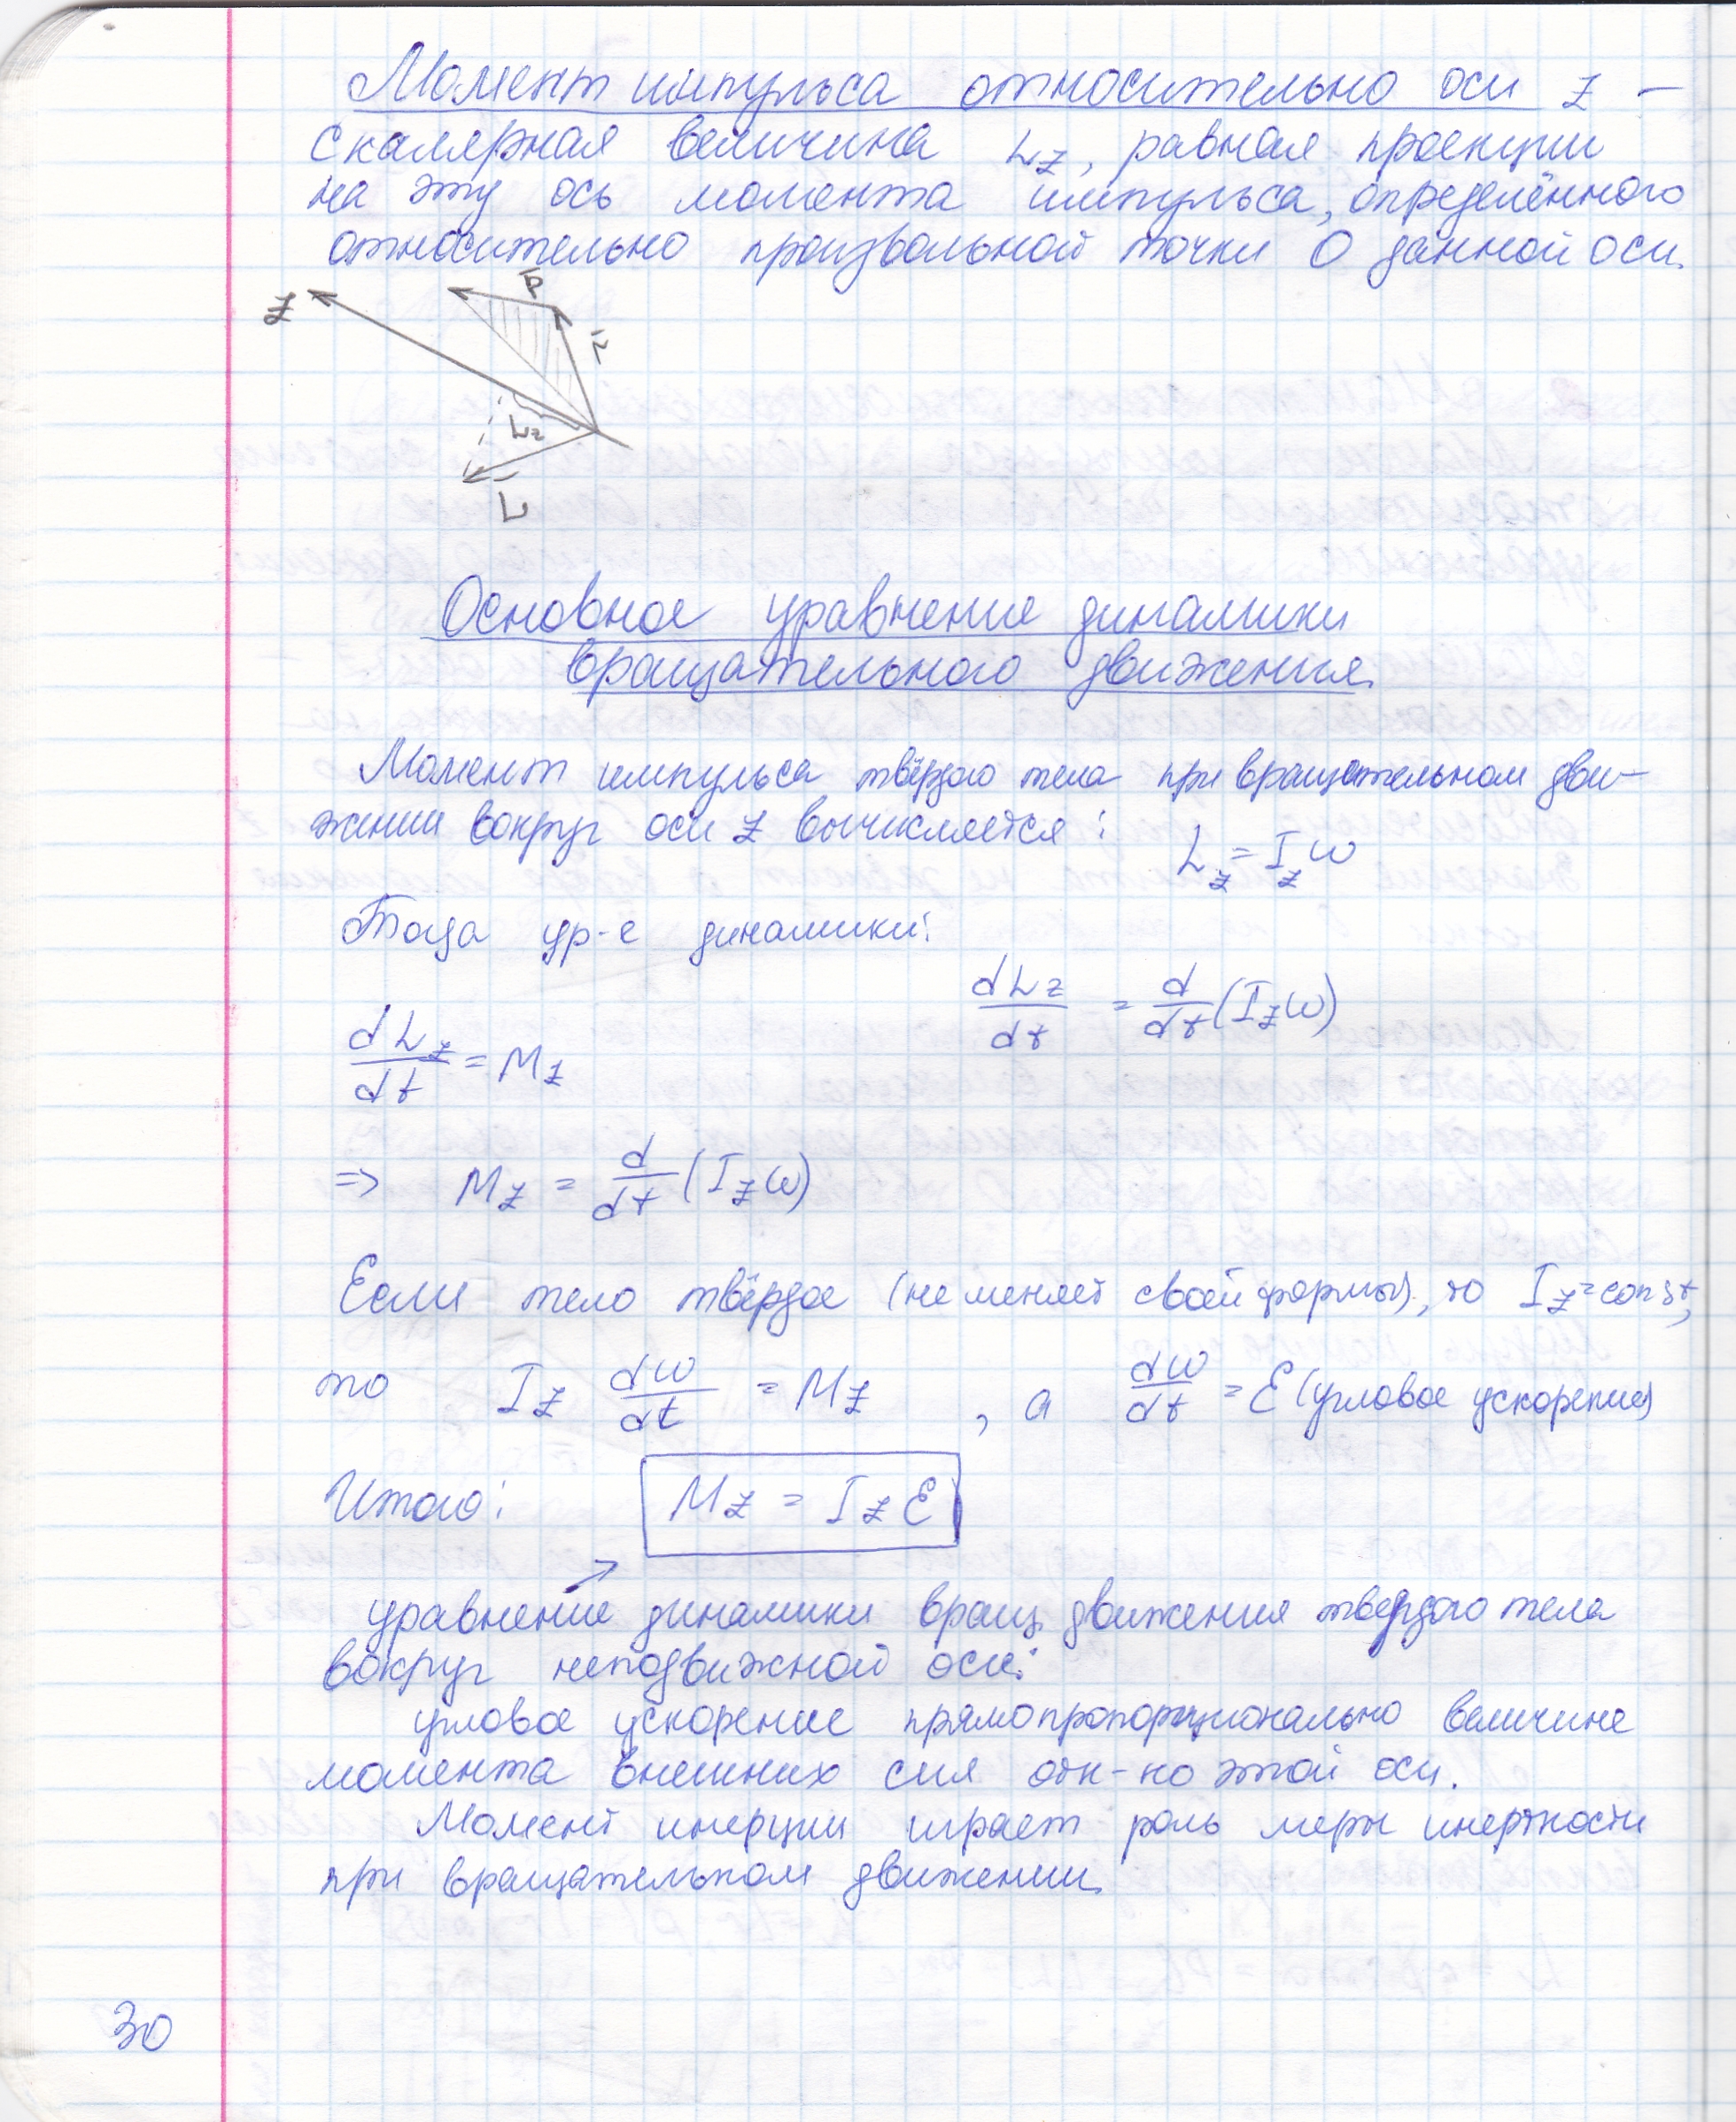 Момент импульса относительно оси z –
скалярная величина Lz, равная проекции
на эту ось момента импульса, определённого
относительно произвольной точки О данной оси.
z
p̄
r̄
Lz
L̄
Основное уравнение динамики
вращательного движения.
Момент импульса твёрдого тела при вращательном дви-
жении вокруг оси z вычисляется:
Lz = Iz ω
Тогда ур-е динамики:
dLz/dt = d/dt (Iz ω)
dLz/dt = Mz
=> Mz = d/dt (Iz ω)
Если тело твёрдое (не меняет своей формы), то Iz = const,
то Iz dω/dt = Mz , а dω/dt = ε (угловое ускорение)
Итого: Mz = Iz ε
уравнение динамики вращ. движения твердого тела
вокруг неподвижной оси:
угловое ускорение прямопропорционально величине
момента внешних сил отн-но этой оси.
Момент инерции играет роль меры инертности
при вращательном движении.
30